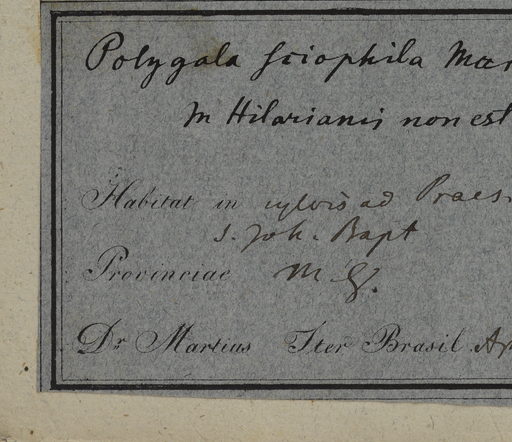 Polygala sciophila Mar
In Hilarianis non est
Habitat in sylvis ad Praes.
S. Joh. Bapt
Provinciae M. G.
Dr Martius Iter Brasil. Ap